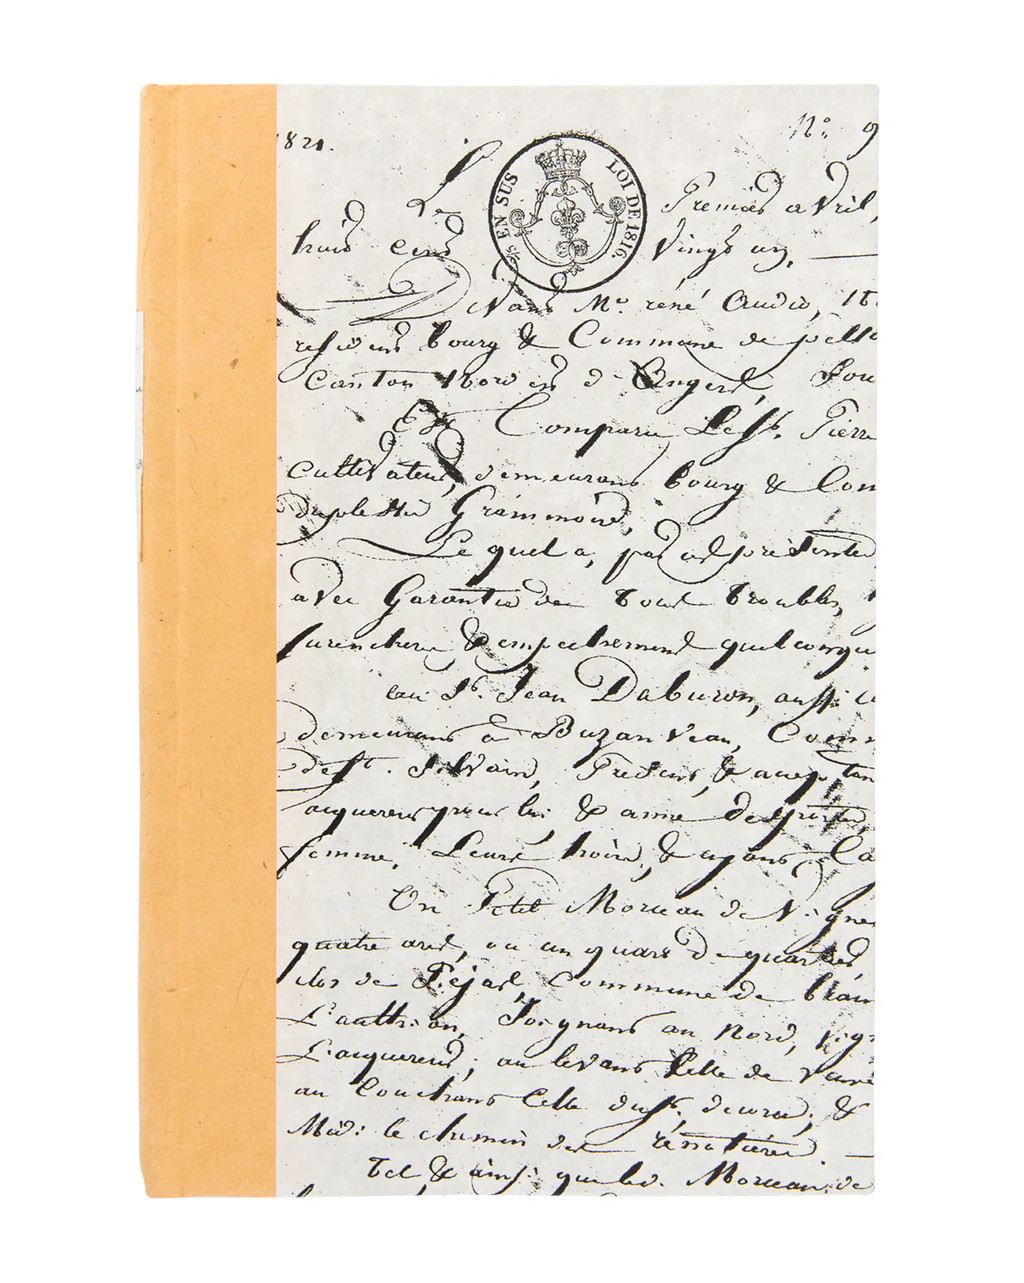 1821.
N.º 9
EN SUS
LOI DE 1816.
Le Premier avril,
huis cens vingt un.
Devans M.e réné Audio, 
résidens bourg & Commune de pelle
Canton Nord est d'Angers,
Est Comparu Le Sr. Pierre
cultivateur, demeurans bourg & Com
Grammoire,
Lequel a, par ces présente
avec Garantie de tous troubles,
surenchere, & empechement quelconque
au Sr. Jean Daburon, aussi cu
demeurans à Buzanveau, Comm
de St. Silvain, Présent, & acceptan
acquereur pour lui, & anne
femme, Leurs hoirs, & ayans Ca
Un Petit Morceau de Vigne
quatre ares, ou un quart de quartier,
clos de Commune de
Joignans au Nord, vign
L'acquereur, au levans Celle de
au Couchans Celle dud. Sr. &
Midi le chemin des
Tel & ainsi que led. Morceau de